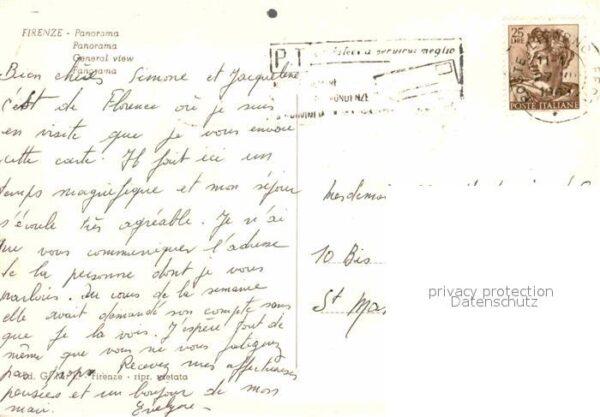 FIRENZE - Panorama
Panorama
General view
Panorama
Bien chères Simone et Jacqueline
c'est de Florence où je suis
en visite que je vous envoie
cette carte. Il fait ici un
temps magnifique et mon séjour
s'écoule très agréable. Je n'ai
que vous communiquer l'adresse
de la personne dont je vous
parlais. Au cours de la semaine
elle avait demandé son compte sans
que je la vois. J'espère tout de
même que vous ne vous fatiguez
pas trop. Recevez mes affectueuses
pensées et un bonjour de mon
mari.
Ed. G. - Firenze - ripr. vietata
P.T. a servirvi meglio
25
LIRE
POSTE ITALIANE
Mesdemoi
10 Bis
St Mar
privacy protection
Datenschutz